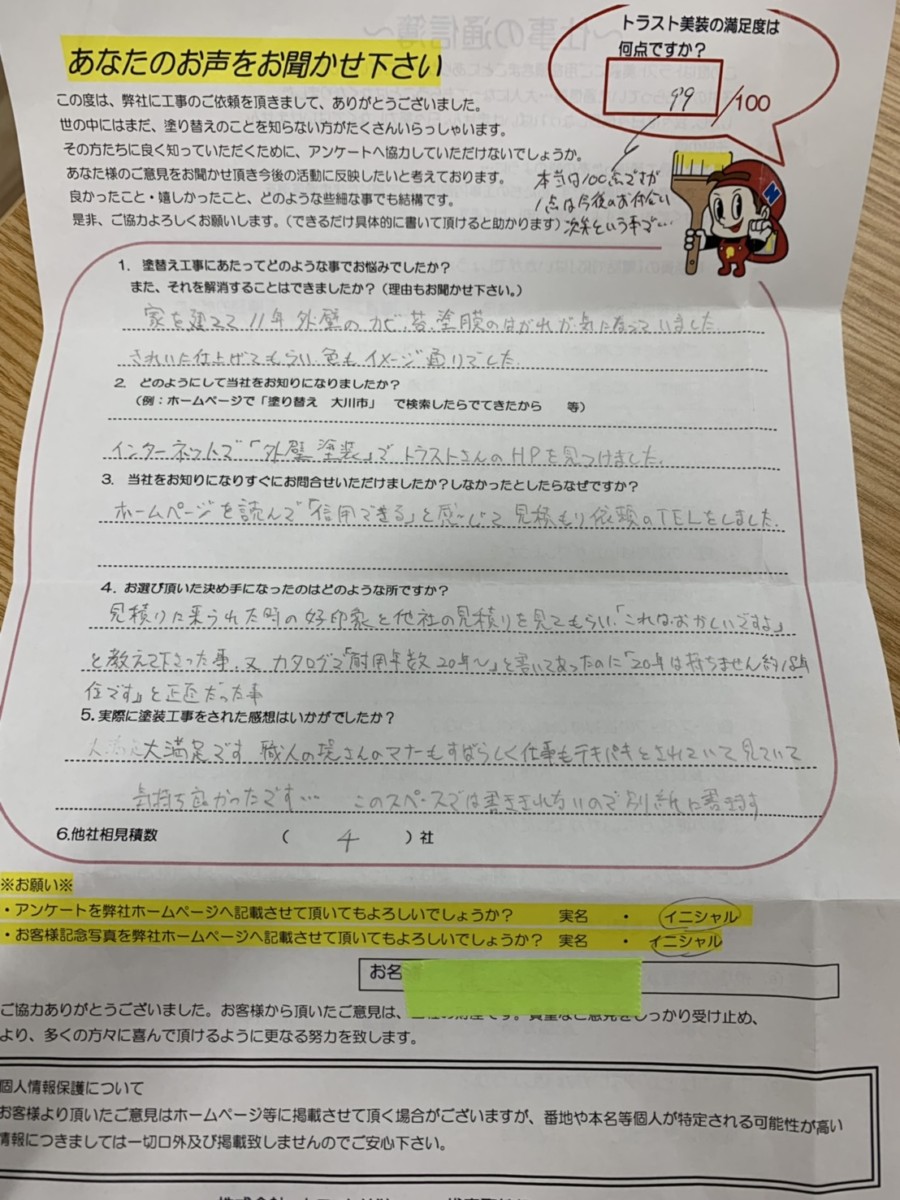 トラスト美装の満足度は
何点ですか?
99/100
本当は100点ですが
1点は今後のお付合い
次第という事で…
あなたのお声をお聞かせ下さい
この度は、弊社に工事のご依頼を頂きまして、ありがとうございました。
世の中にはまだ、塗り替えのことを知らない方がたくさんいらっしゃいます。
その方たちに良く知っていただくために、アンケートへ協力していただけないでしょうか。
あなた様のご意見をお聞かせ頂き今後の活動に反映したいと考えております。
良かったこと・嬉しかったこと、どのような些細な事でも結構です。
是非、ご協力よろしくお願いします。(できるだけ具体的に書いて頂けると助かります)
1. 塗替え工事にあたってどのような事でお悩みでしたか?
また、それを解消することはできましたか?(理由もお聞かせ下さい。)
家を建てて11年外壁のカビ、苔、塗膜のはがれが気になっていました。
きれいに仕上げてもらい、色もイメージ通りでした。
2. どのようにして当社をお知りになりましたか?
(例:ホームページで「塗り替え 大川市」 で検索したらでてきたから 等)
インターネットで「外壁 塗装」でトラストさんのHPを見つけました。
3. 当社をお知りになりすぐにお問合せいただけましたか?しなかったとしたらなぜですか?
ホームページを読んで「信用できる」と感じて見積もり依頼のTELをしました。
4. お選び頂いた決め手になったのはどのような所ですか?
見積りに来られた時の好印象と他社の見積りを見てもらい「これはおかしいですよ」
と教えて下さった事、又、カタログで「耐用年数20年〜」と書いてあったのに「20年は持ちません約15年
位です」と正直だった事
5. 実際に塗装工事をされた感想はいかがでしたか?
大満足です 職人の皆さんのマナーもすばらしく仕事もテキパキとされていて見ていて
気持ち良かったです… このスペースでは書ききれないので別紙に書きます
6.他社相見積数 ( 4 )社
※お願い※
・アンケートを弊社ホームページへ記載させて頂いてもよろしいでしょうか? 実名 ・ イニシャル
・お客様記念写真を弊社ホームページへ記載させて頂いてもよろしいでしょうか? 実名 ・ イニシャル
お名
ご協力ありがとうございました。お客様から頂いたご意見は、
しっかり受け止め、
より、多くの方々に喜んで頂けるように更なる努力を致します。
個人情報保護について
お客様より頂いたご意見はホームページ等に掲載させて頂く場合がございますが、番地や本名等個人が特定される可能性が高い
情報につきましては一切口外及び掲載致しませんのでご安心下さい。